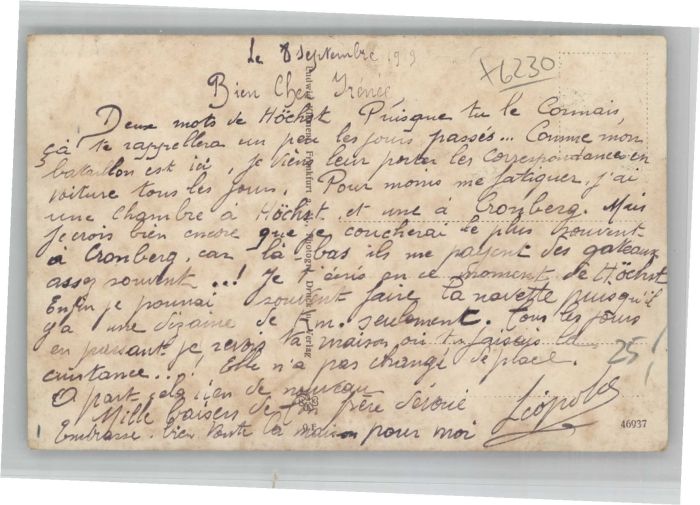 Le 8 Septembre 1919
X6230
Bien Cher Irénée
Deux mots de Höchst. Puisque tu le connais,
çà te rappellera un peu les jours passés... Comme mon
bataillon est ici, je viens leur porter les correspondances en
voiture tous les jours. Pour moins me fatiguer, j'ai
une chambre à Höchst et une à Cronberg. Mais
je crois bien encore que je coucherai le plus souvent
à Cronberg, car là-bas ils me payent des gateaux
assez souvent...! Je t'écris en ce moment de Höchst
Enfin je pourrai souvent faire la navette puisqu'il
y a une dizaine de km. seulement. Tous les jours
en passant je revois la maison où tu faisais la
cuistance...! Elle n'a pas changé de place.
25!
A part cela rien de nouveau
Mille baisers de ton frère dévoué
Embrasse bien toute la maison pour moi
Léopold
46937
Frankfurt